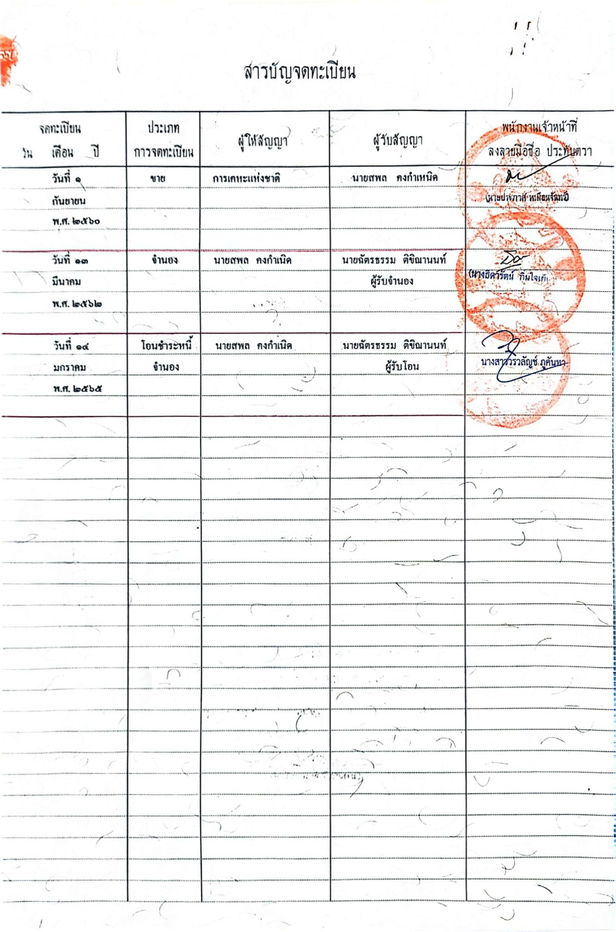 สารบัญจดทะเบียน
จดทะเบียน ประเภท ผู้ให้สัญญา ผู้รับสัญญา พนักงานเจ้าหน้าที่
วัน เดือน ปี การจดทะเบียน ลงลายมือชื่อ ประทับตรา
วันที่ ๑ ขาย การเคหะแห่งชาติ นายสพล คงกำเหนิด
กันยายน
พ.ศ. ๒๕๖๐
วันที่ ๑๓ จำนอง นายสพล คงกำเนิด นายฉัตรธรรม ดิชิฌานนท์
มีนาคม ผู้รับจำนอง
พ.ศ. ๒๕๖๒
วันที่ ๑๔ โอนชำระหนี้ นายสพล คงกำเนิด นายฉัตรธรรม ดิชิฌานนท์
มกราคม จำนอง ผู้รับโอน
พ.ศ. ๒๕๖๕